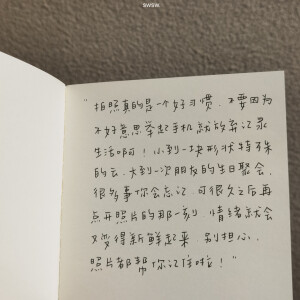 swsw.
"拍照真的是一个好习惯.不要因为
不好意思举起手机就放弃记录
生活啊！小到一块形状特殊
的云.大到一次朋友的生日聚会.
很多事你会忘记.可很久之后再
点开照片的那一刻 情绪就会
又变得新鲜起来.别担心.
照片都帮你记住啦！"